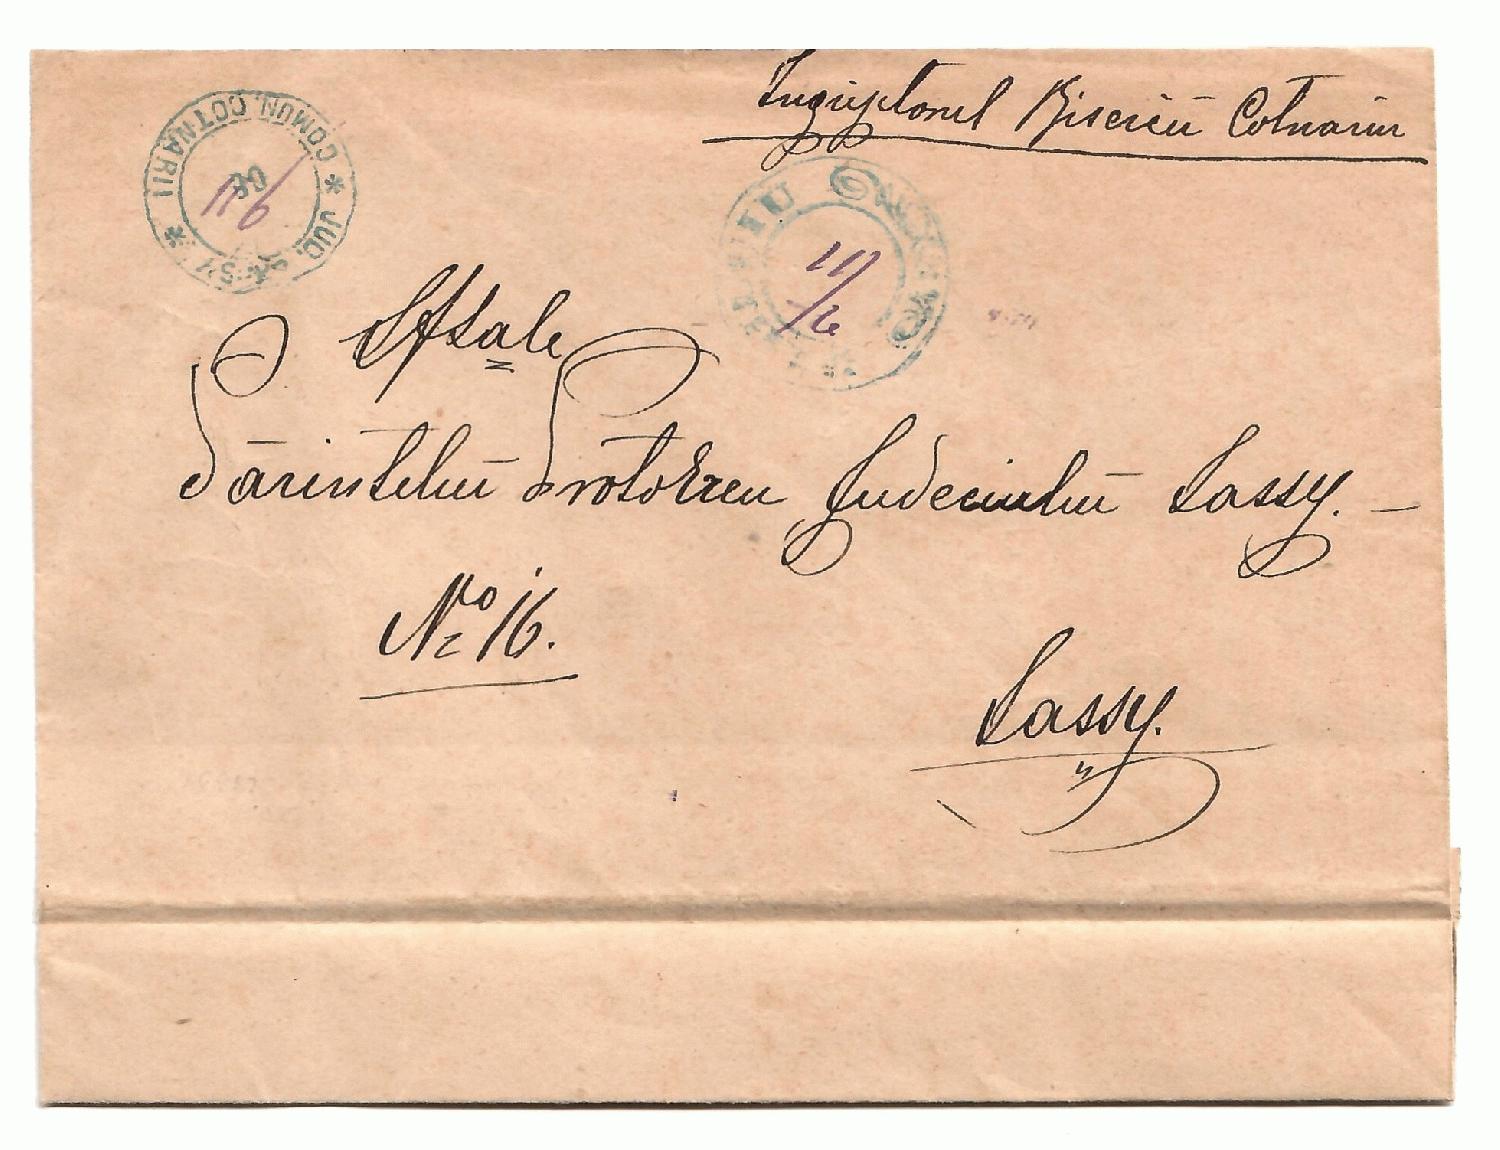 Îngrijitorul Bisericii Cotnariu
COMUN. COTNARII * JUD. IASSY *
11/6
11/6
Sfsale
Părintelui Protoereu Judeciului Iassy. —
No 16.
Iassy.